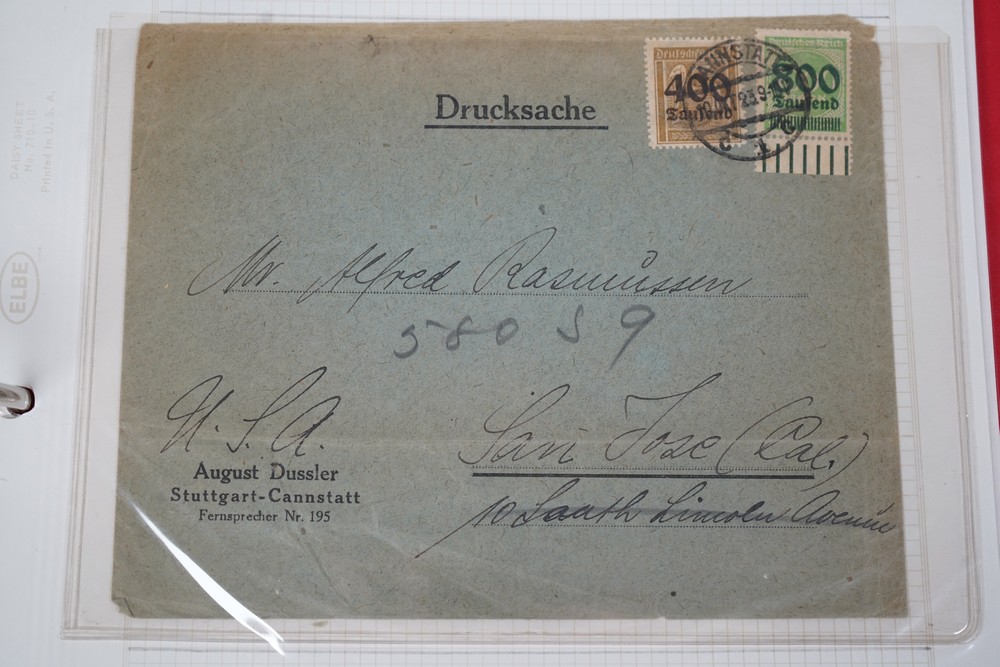 Deutsches Reich
400
Tausend
Deutsches Reich
800
Tausend
CANNSTATT
23 9-10
Drucksache
Mr. Alfred Rasmussen
580 S 9
U. S. A.
San Jose (Cal.)
10 South Lincoln Avenue
August Dussler
Stuttgart-Cannstatt
Fernsprecher Nr. 195
DAISY SHEET
Printed in U. S. A.
ELBE